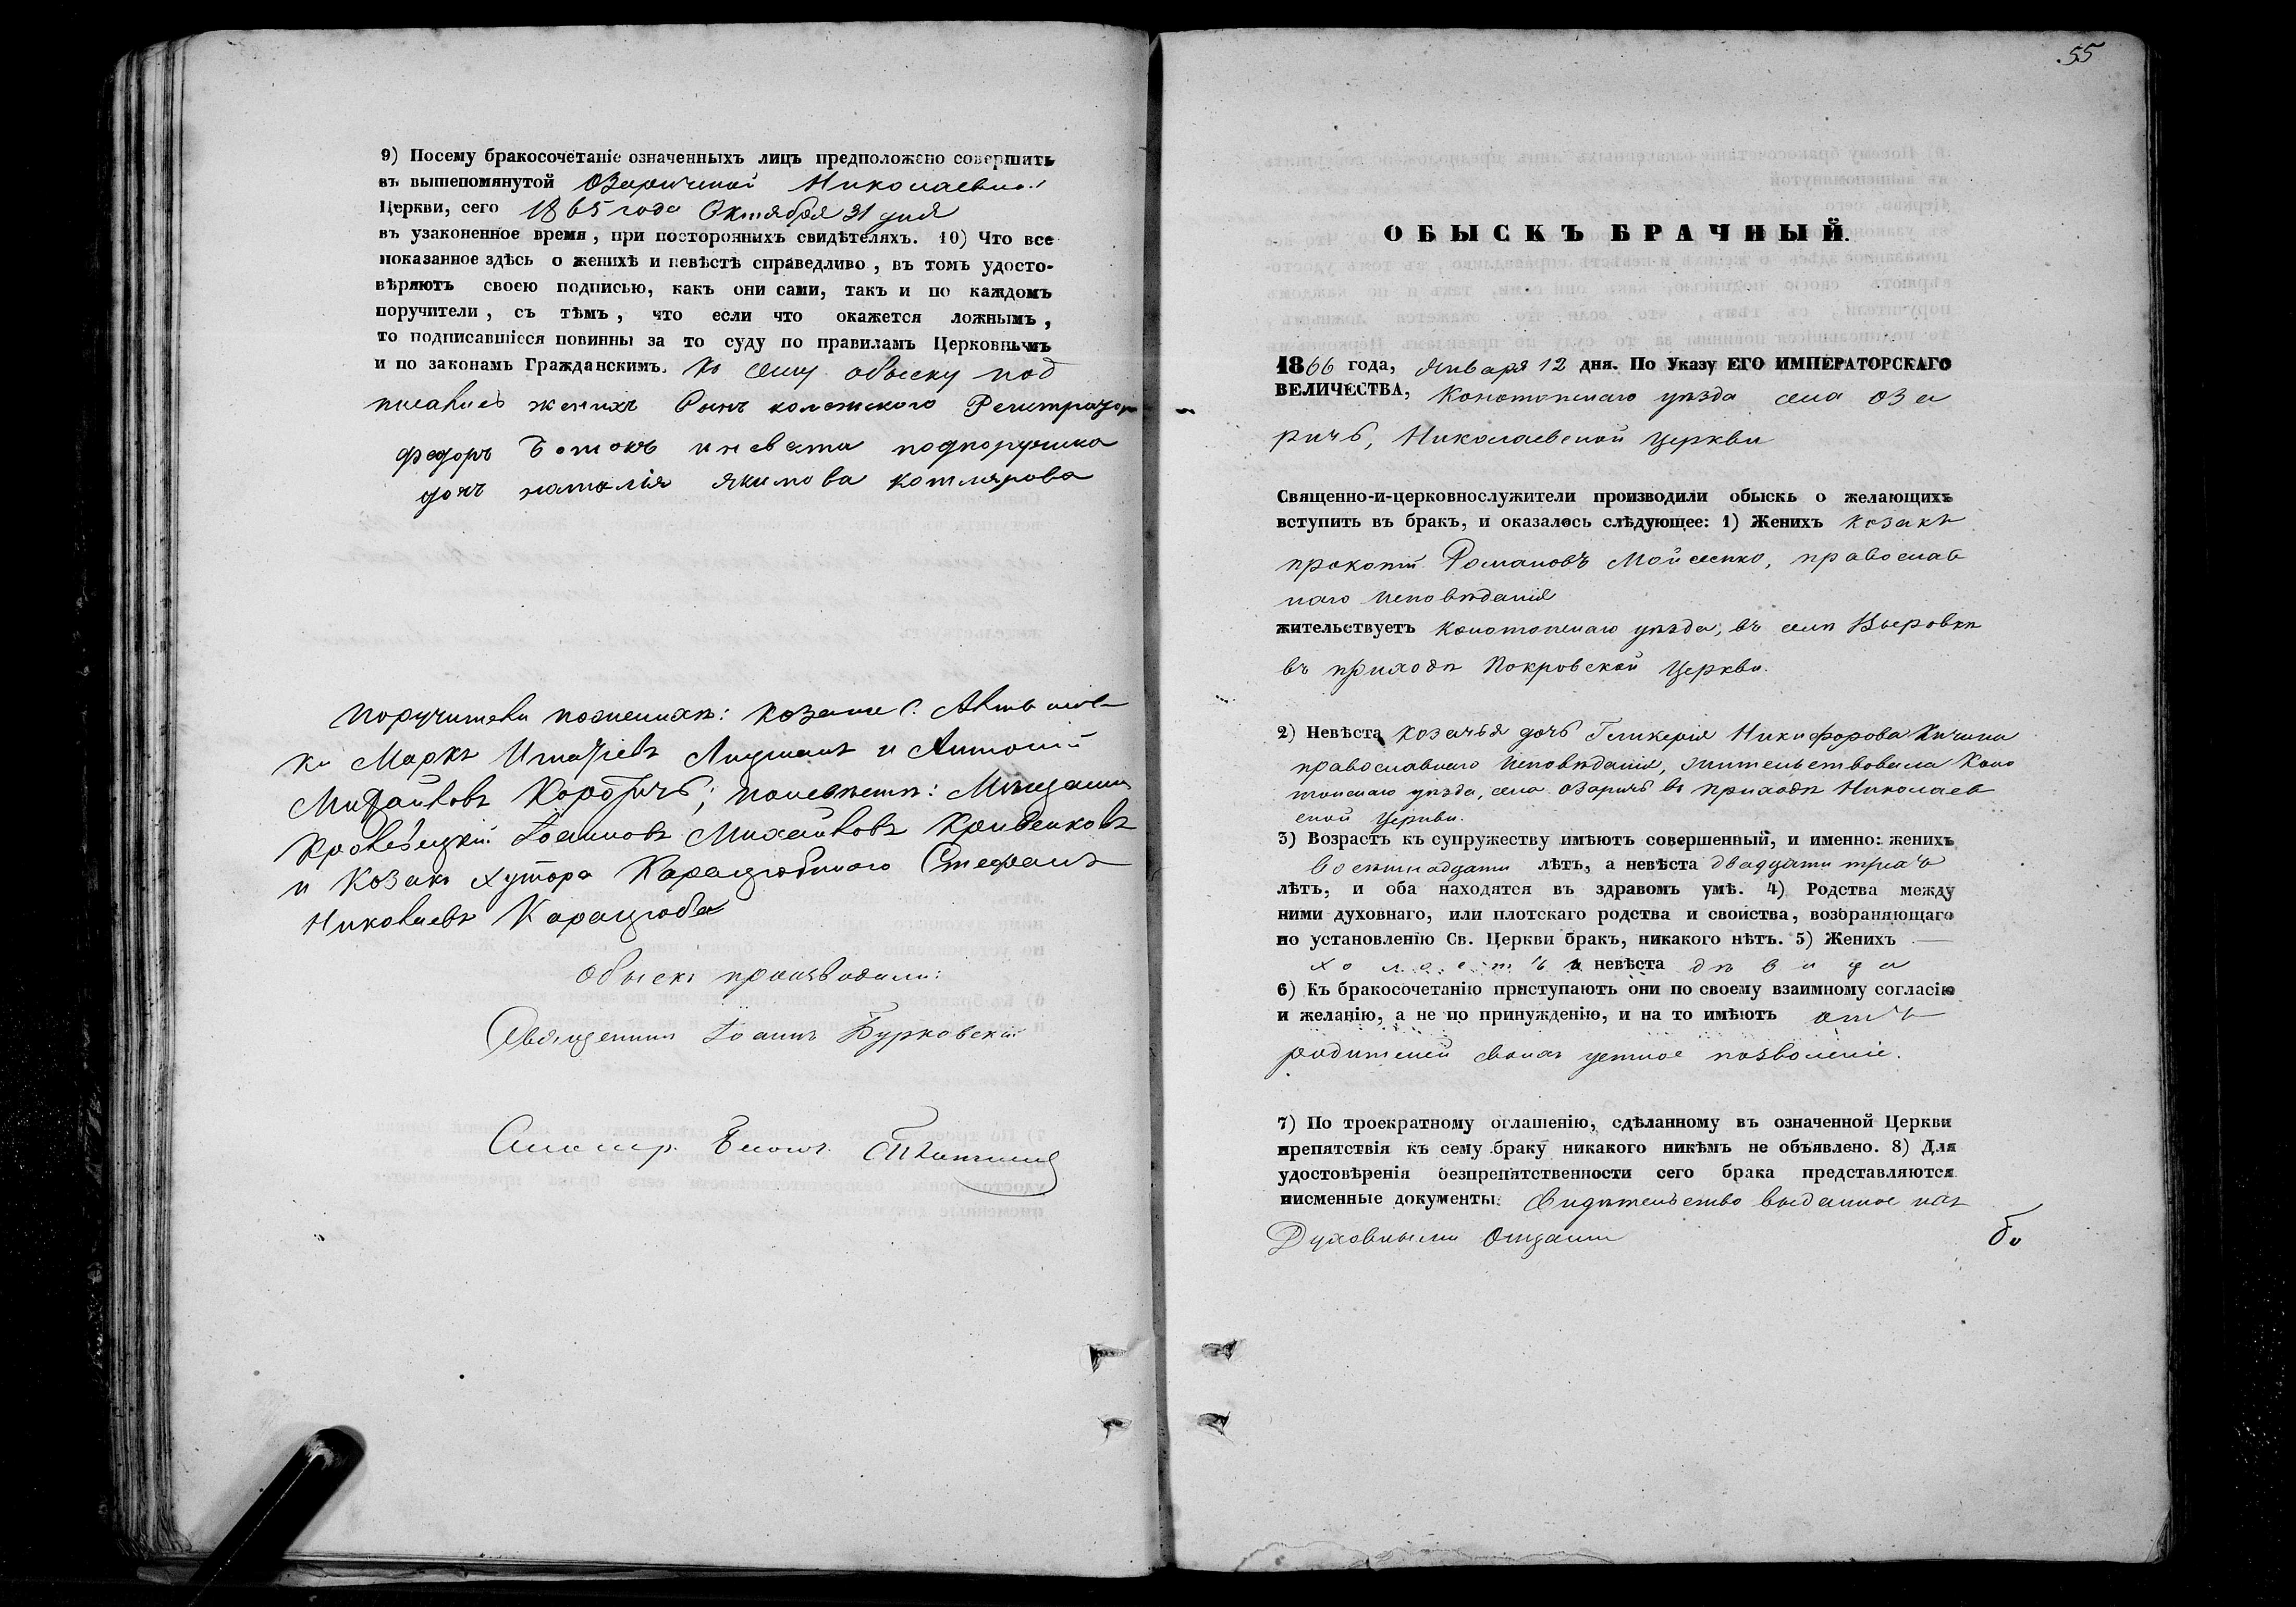 9) Посему бракосочетаніе означенныхъ лицъ предположено совершить
въ вышепомянутой Озаричской Николаевской
Церкви, сего 1865 года Октября 31 дня
въ узаконенное время, при постороннихъ свидѣтеляхъ. 10) Что все
показанное здѣсь о женихѣ и невѣстѣ справедливо, въ томъ удосто-
вѣряютъ своею подписью, какъ они сами, такъ и по каждомъ
поручители, съ тѣмъ, что если что окажется ложнымъ,
то подписавшіеся повинны за то суду по правиламъ Церковнымъ
и по законамъ Гражданскимъ. Къ сему обыску под
писались женихъ Сынъ колежского Регистратора
федоръ и невеста подпоручика
дочь наталія якимова котлярова
Поручители по женихѣ: козаки с.
ки Маркъ Игнатіевъ и Антоній
Михайловъ; по невѣстѣ: Мѣщанин
Кролевецкій Іоанновъ Михайловъ
и Козакъ хутора Карацюбиного Стефанъ
Николаевъ Карацюба
Обыскъ производили:
Священникъ Іоаннъ Бурковскій
55
ОБЫСКЪ БРАЧНЫЙ.
1866 года, Января 12 дня. По Указу ЕГО ИМПЕРАТОРСКАГО
ВЕЛИЧЕСТВА, Конотопскаго уѣзда села Оза
ричъ, Николаевской церкви
Священно-и-церковнослужители производили обыскъ о желающихъ
вступить въ бракъ, и оказалось слѣдующее: 1) Женихъ козакъ
прокопій Романовъ Мойсеенко, православ
наго исповѣданія
жительствуетъ Конотопскаго уѣзда, въ селѣ Выровкѣ
въ приходѣ Покровской церкви.
2) Невѣста козачья дочь Гликерія Никифорова
православнаго исповѣданія, жительствовала Коно
топскаго уѣзда, села Озаричъ въ приходѣ Николаев
ской церкви.
3) Возрастъ къ супружеству имѣютъ совершенный, и именно: женихъ
восемнадцати лѣтъ, а невѣста двадцати трехъ
лѣтъ, и оба находятся въ здравомъ умѣ. 4) Родства между
ними духовнаго, или плотскаго родства и свойства, возбраняющаго
по установленію Св. Церкви бракъ, никакого нѣтъ. 5) Женихъ
холостъ и невѣста дѣвица
6) Къ бракосочетанію приступаютъ они по своему взаимному согласію
и желанію, а не по принужденію, и на то имѣютъ отъ
родителей своихъ устное позволеніе.
7) По троекратному оглашенію, сдѣланному въ означенной Церкви
препятствія къ сему браку никакого никѣмъ не объявлено. 8) Для
удостовѣренія безпрепятственности сего брака представляются
писменные документы: Свидѣтельство выданное ихъ
Духовными Отцами